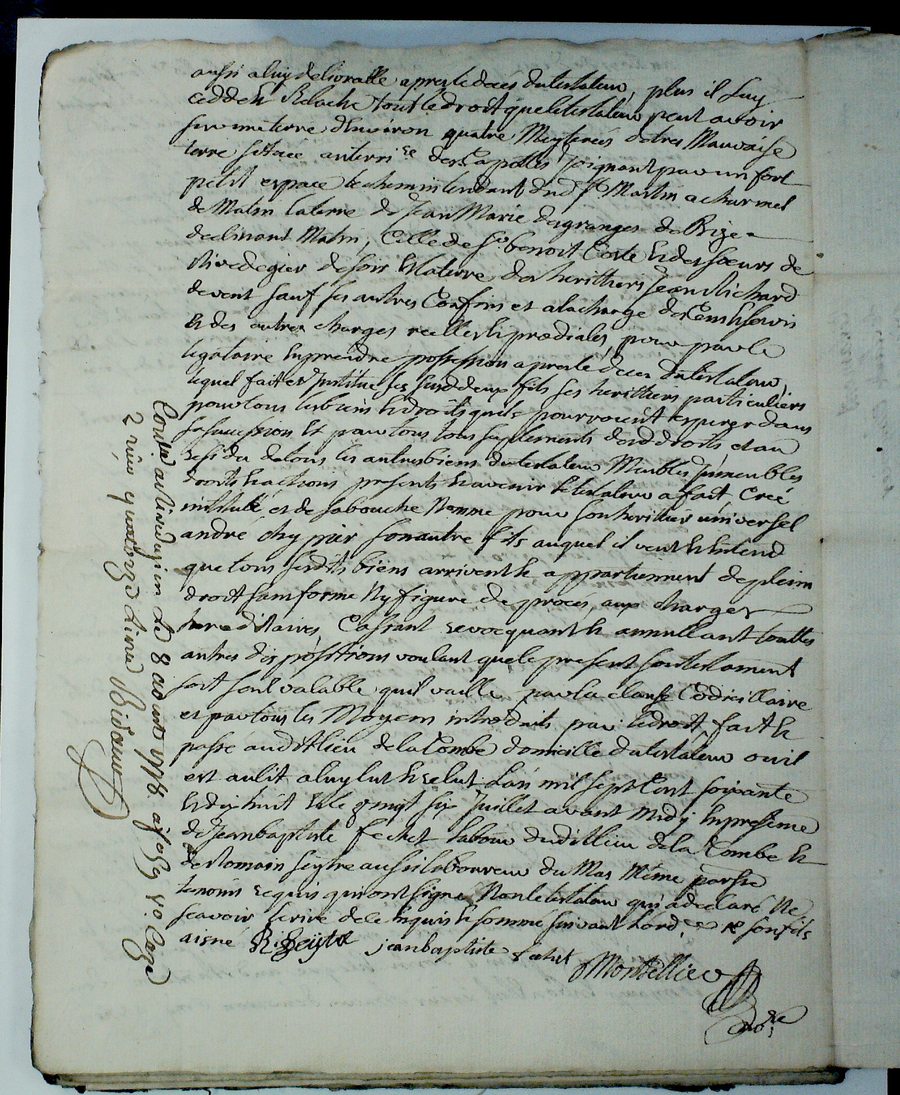 aussi a luy delivrable apres le decés du testateur, plus il luy
cedde et Relache tout le droit que le testateur peut avoir
sur une terre d'Environ quatre Meyterées de tres Mauvaise
terre située au terri.re de St apolle Joignant par un fort
petit espace le chemin tendant du d. St. Martin a
de Matin la terre de Jean Marie desgranges de Bize
declinant Matin, Celle de Sr. benoit Corte et des soeurs de
Rivedegier de soir et la terre des heritiers Jean Richard
de vent sauf ses autres Confins et a la charge de Cens et servis
et des autres charges réelles et prædiales, pour par le
legataire En prendre possession apres le deces du testateur,
lequel fait et Institue les susd. deux fils ses heritiers particuliers
pour tous les biens et droits quils pourroient esperer dans
sa succession Et pour tous suplements desd. droits, et au
residu de tous les autres biens du testateur Meubles Immeubles
droits et actions presents et avenir le testateur a fait, Créé
institué et de sa bouche Nommé pour son heritier universel
andré chypier son autre fils auquel il veut Et Entend
que tous sesdits biens arrivent et appartiennent de plein
droit sans forme Ny figure de procés, aux charges
hereditaires, Cassant revocquant et annullant touttes
autres dispositions voulant que le present son testament
soit seul valable quil vaille par la clause Codicillaire
et par tous les Moyens introduits par le droit, fait et
passé audit lieu de la Combe domicille du testateur ou il
est au lit a luy lut et relut L'an mil sept Cent soixante
et dix huit et le vingt six Juillet avant Midy En presence
de Jean baptiste fechet labour. dudit lieu de la Combe Et
de Romain seytre aussi laboureur du Mas Même par.sse
temoins requis qui ont signé Non le testateur qui a declaré Ne
scavoir Ecrire de ce Enquis et sommé suivant L'ord.ce son fils
aisné R. Seijtre jean baptiste fechet
Montellier
No.re
Con.lé au Rivedegier Le 8 aoust 1778. a fo 59 Vo. Case
2 reçu quatorze Livres Bidaut